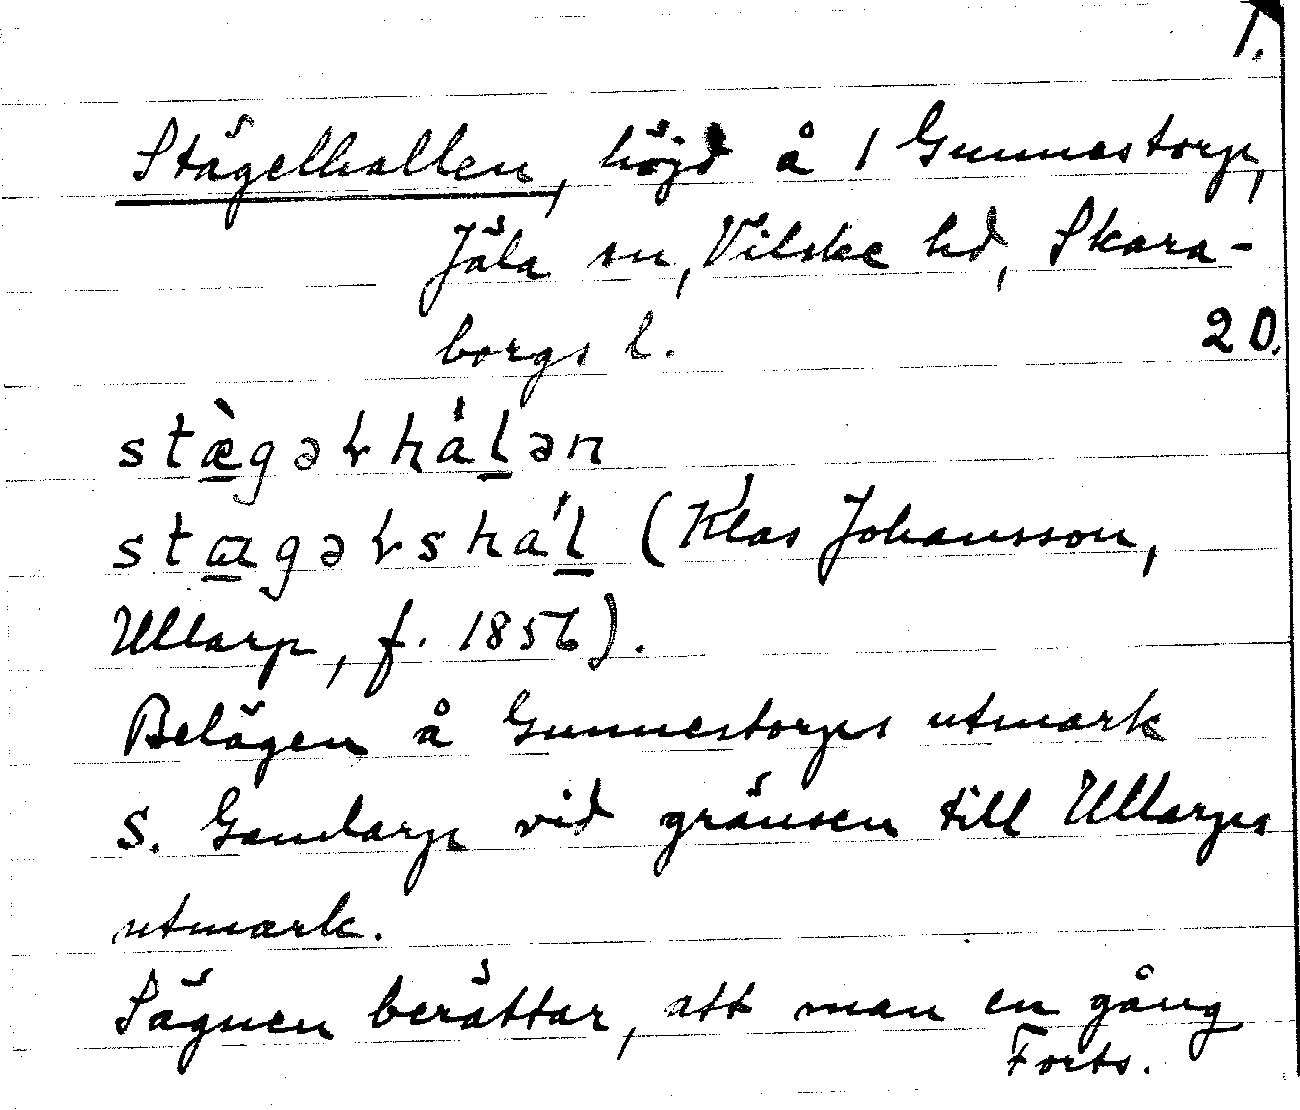 1.
Stägelhallen, höjd å 1 Gunnestorp,
Jäla sn, Vilske hd, Skara-
borgs l. 20.
stæ̀gəƚháḷən
stagəƚsháḷ (Klas Johansson,
Ullarp, f. 1856).
Belägen å Gunnestorps utmark
S. Gamlarp vid gränsen till Ullarps
utmark.
Sägnen berättar, att man en gång
Forts.